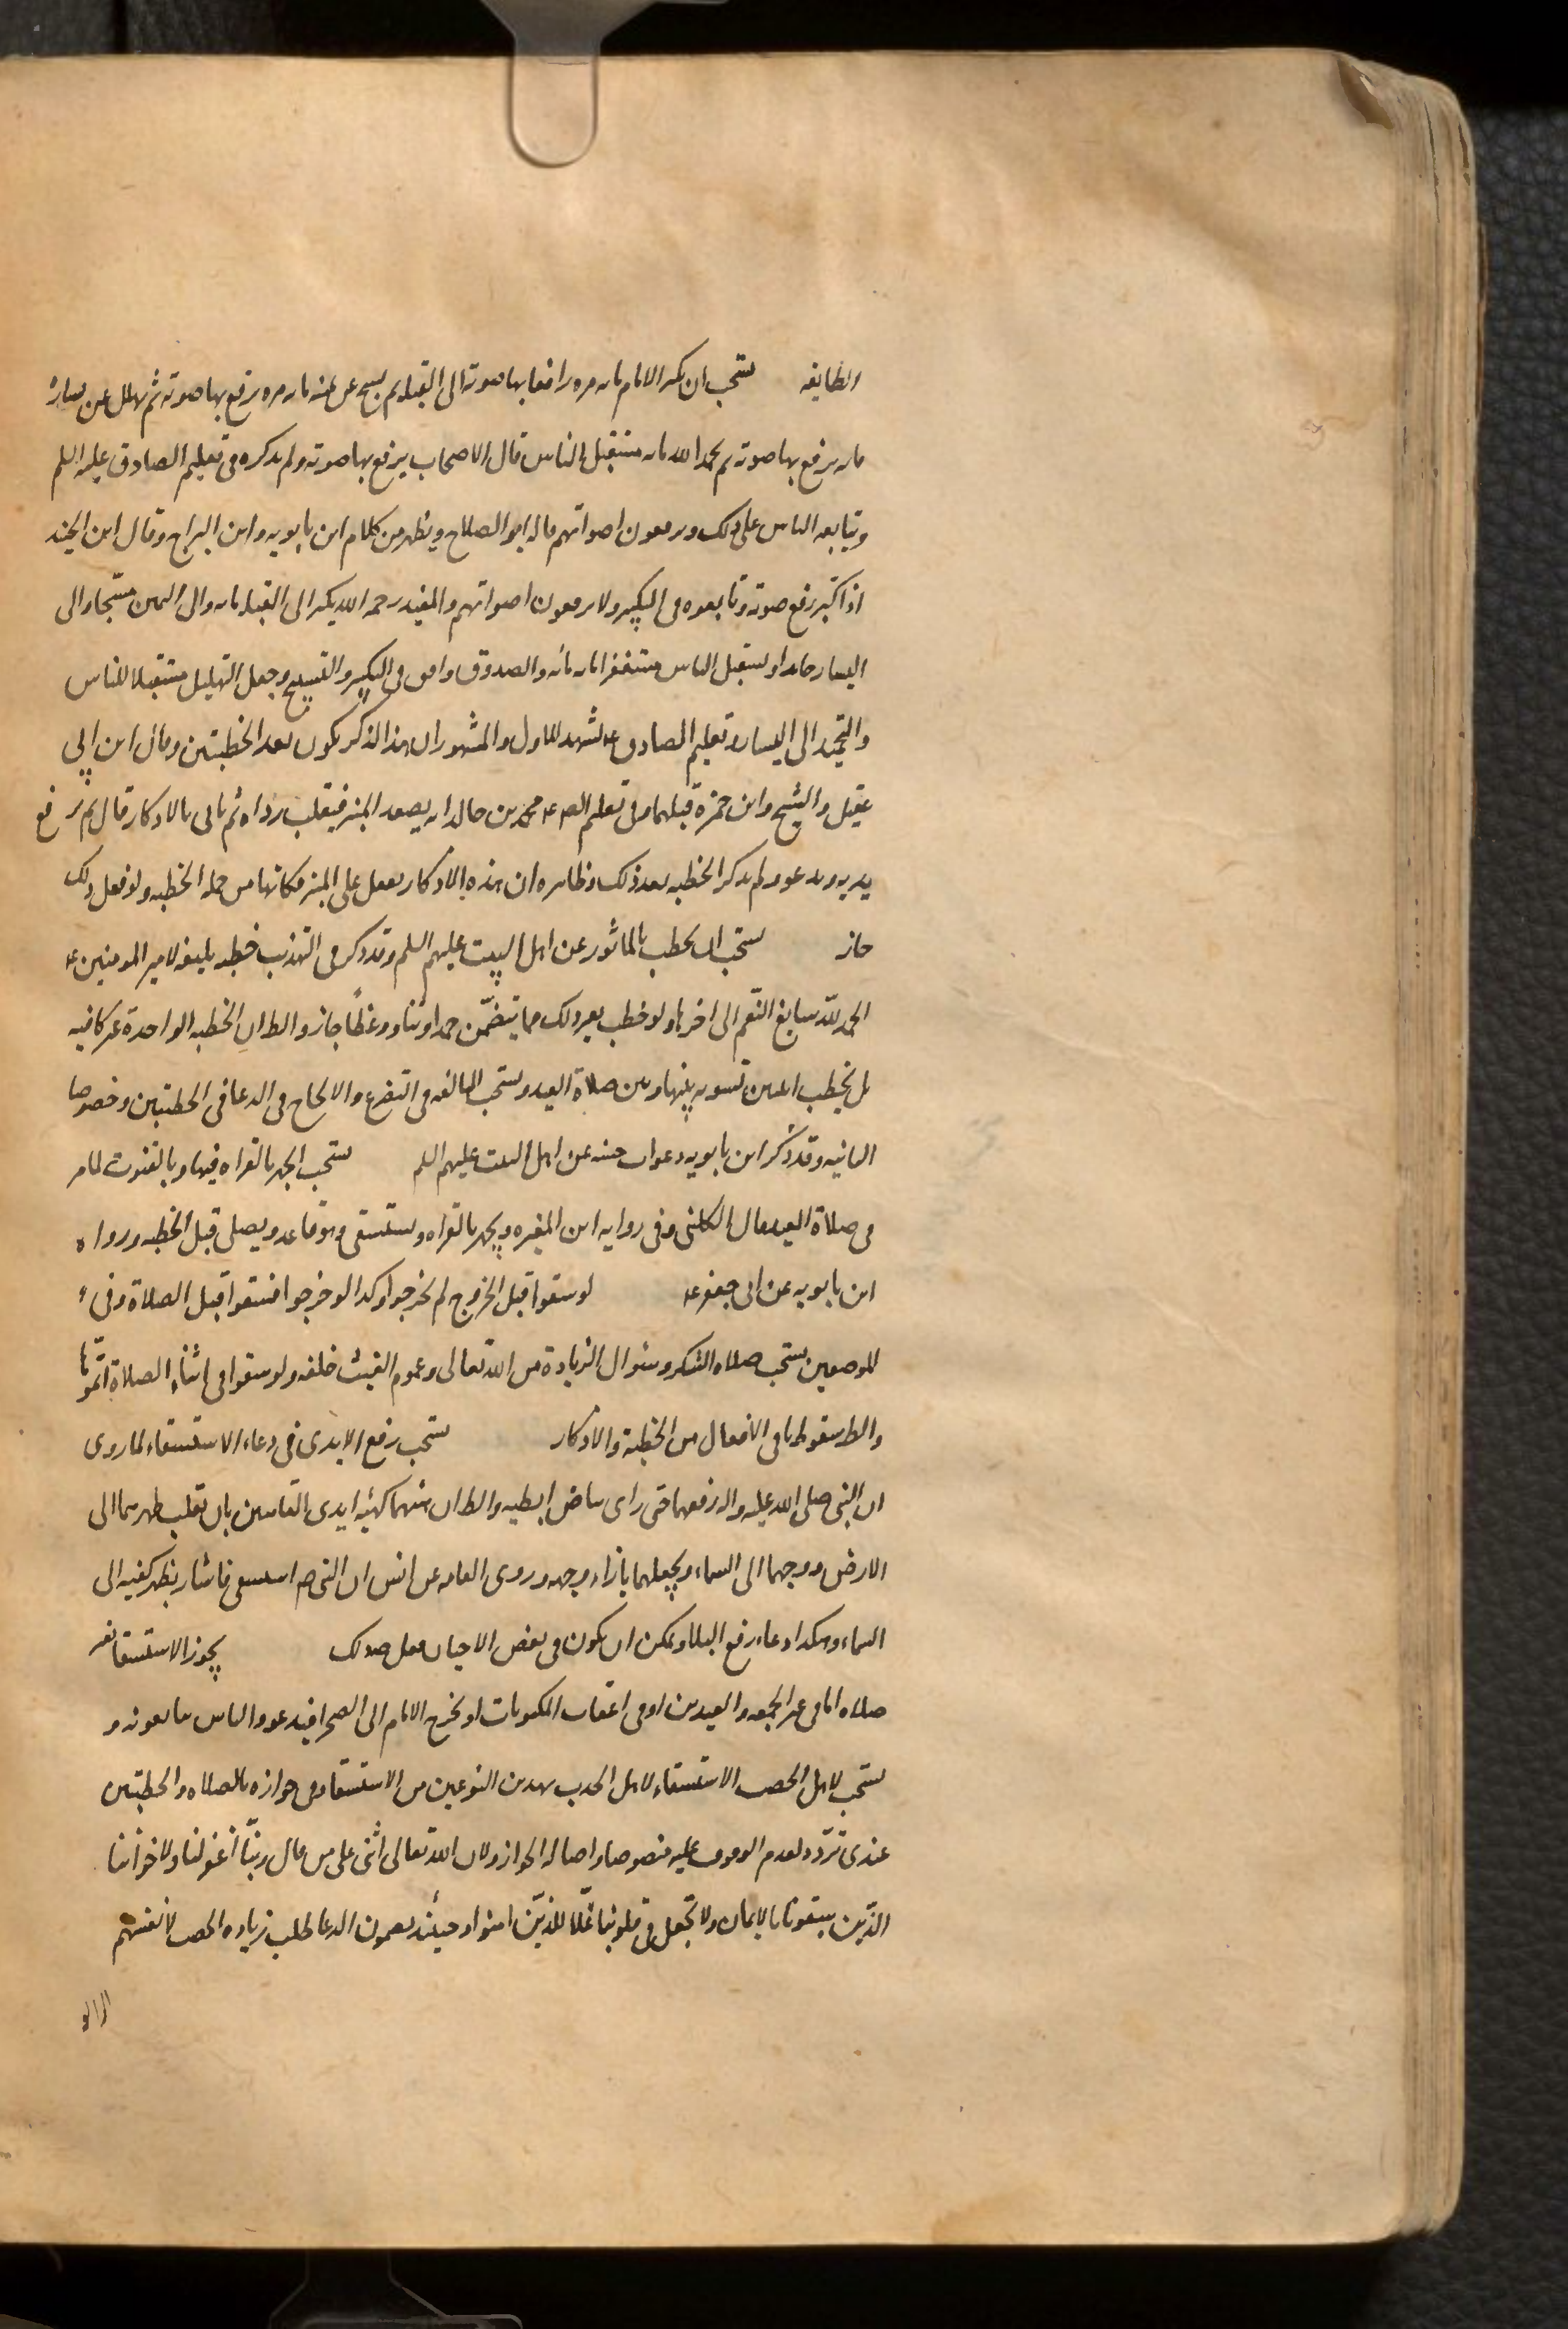 الطايفه يستحب ان يكبر الامام مايه مره رافعا بها صوته الى القبله ثم يسبح عن يمينه مايه مره يرفع بها صوته ثم يهلل عن يساره
مايه يرفع بها صوته ثم يحمد الله مايه مستقبل الناس قال الاصحاب يرفع بها صوته ولم يذكره فى تعليم الصادق عليه السلم
ويتابعه الناس على ذلك ويرفعون اصواتهم قاله ابو الصلاح ويظهر من كلام ابن بابويه وابن البراج وقال ابن الجنيد
اذا كبّر رفع صوته وتابعوه فى التكبير ولا يرفعون اصواتهم والمفيد رحمه الله يكبر الى القبله مايه والى اليمين مسبّحا والى
اليسار حامدا ويستقبل الناس مستغفرا مايه مايه والصدوق وافق فى التكبير والتسبيح وجعل التهليل مستقبلا للناس
والتحميد الى اليسار وتعليم الصادق ع يشهد للاول والمشهور ان هذا الذكر يكون بعد الخطبتين وقال ابن ابى
عقيل والشيخ وابن حمزة قبلهما وفى تعليم الص ع محمد بن خالد انه يصعد المنبر فيقلب رداه ثم ياتى بالاذكار قال ثم يرفع
يديه ويدعو ولم يذكر الخطبه بعد ذلك وظاهره ان هذه الاذكار يفعل على المنبر فكانها من جمله الخطبه ولو فعل ذلك
جاز يستحب ان يخطب بالماثور عن اهل البيت عليهم السلم وقد ذكر فى التهذيب خطبه بليغه لامير المومنين ع
الحمد لله سابغ النّعم الى اخرها ولو خطب بغير ذلك مما يتضمّن حمدا وثنا ووعظًا جاز والظ ان الخطبه الواحدة غير كافيه
بل يخطب اثنين تسويه بينها وبين صلاة العيد ويستحب المبالغه فى التضرع والالحاح فى الدعا فى الخطبتين وخصوصا
الثانيه وقد ذكر ابن بابويه دعوات حسنه عن اهل البيت عليهم السلم يستحب الجهر بالقراه فيها وبالقنوت لما مر
فى صلاة العيد وقال الكلينى وفى روايه ابن المغيره ويجهر بالقراه ويستسقى وهو قاعد ويصلى قبل الخطبه ورواه
ابن بابويه عن ابى جعفر ع لو سقوا قبل الخروج لم يخرجوا وكذا لو خرجوا فسقوا قبل الصلاة وفى
الموضعين يستحب صلاه الشكر وسئوال الزيادة من الله تعالى وعموم الغيث خلقه ولو سقوا فى اثناء الصلاة اتمّوها
والظ سقوط باقى الافعال من الخطبة والاذكار يستحب رفع الايدى فى دعاء الاستسقاء لما روى
ان النبى صلى الله عليه واله رفعهما حتى راى بياض ابطيه والظ ان هيئتهما كهيئه ايدى القانتين بان يقلب ظهرهما الى
الارض ووجهما الى السماء ويجعلهما بازاء وجهه وروى العامه عن انس ان النبى ص استسقى فاشار بظهر كفيه الى
السماء وهكذا دعاء رفع البلا ويمكن ان يكون فى بعض الاحيان فعل ص ذلك يجوز الاستسقا بغير
صلاه اما فى خطبه الجمعه والعيدين او فى اعقاب المكتوبات او يخرج الامام الى الصحرا فيدعو والناس يتابعونه و
يستحب لاهل الخصب الاستسقاء لاهل الجدب بهذين النوعين من الاستسقا وفى جوازه بالصلاه والخطبتين
عندى تردّد لعدم الوقوف عليه منصوصا واصاله الجواز ولان الله تعالى اثنى على من قال ربّنا اغفر لنا ولاخواننا
الذّين سبقونا بالايمان ولا تجعل فى قلوبنا غلّا للذيّن امنوا وحينئذ يضمون الدعا طلب زياده الخصب لانفسهم